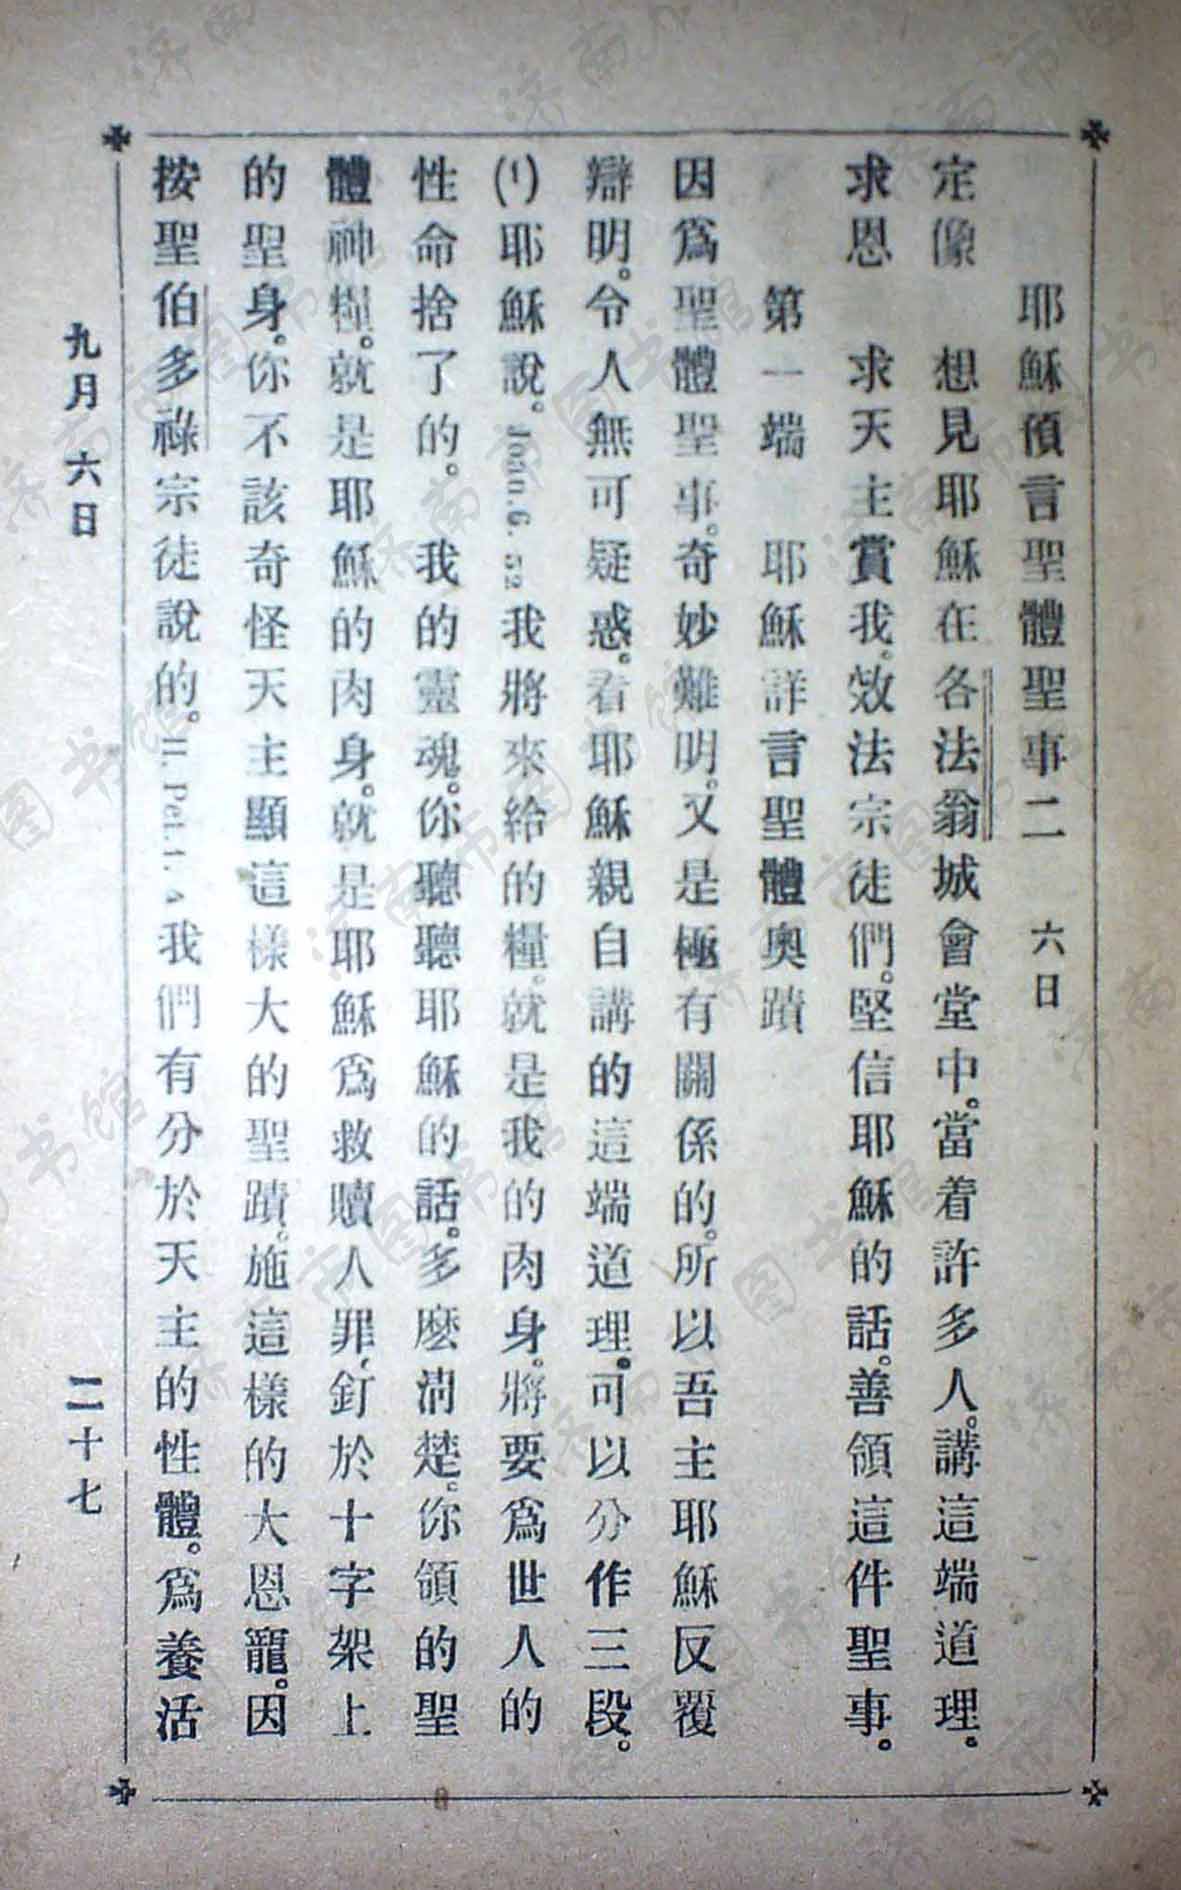 耶穌預言聖體聖事二　六日
定像　想見耶穌在各法翁城會堂中。當着許多人。講這端道理。
求恩　求天主賞我。效法宗徒們。堅信耶穌的話。善領這件聖事。
第一端　耶穌詳言聖體奧蹟
因爲聖體聖事。奇妙難明。又是極有關係的。所以吾主耶穌反覆
辯明。令人無可疑惑。看耶穌親自講的這端道理。可以分作三段。
(1)耶穌說。Joan. 6. 52 我將來給的糧。就是我的肉身。將要爲世人的
性命捨了的。我的靈魂。你聽聽耶穌的話。多麼清楚。你領的聖
體神糧。就是耶穌的肉身。就是耶穌爲救贖人罪、釘於十字架上
的聖身。你不該奇怪天主顯這樣大的聖蹟。施這樣的大恩寵。因
按聖伯多祿宗徒說的。II. Pet. 1. 4 我們有分於天主的性體。爲養活
九月六日　二十七
济南市图书馆